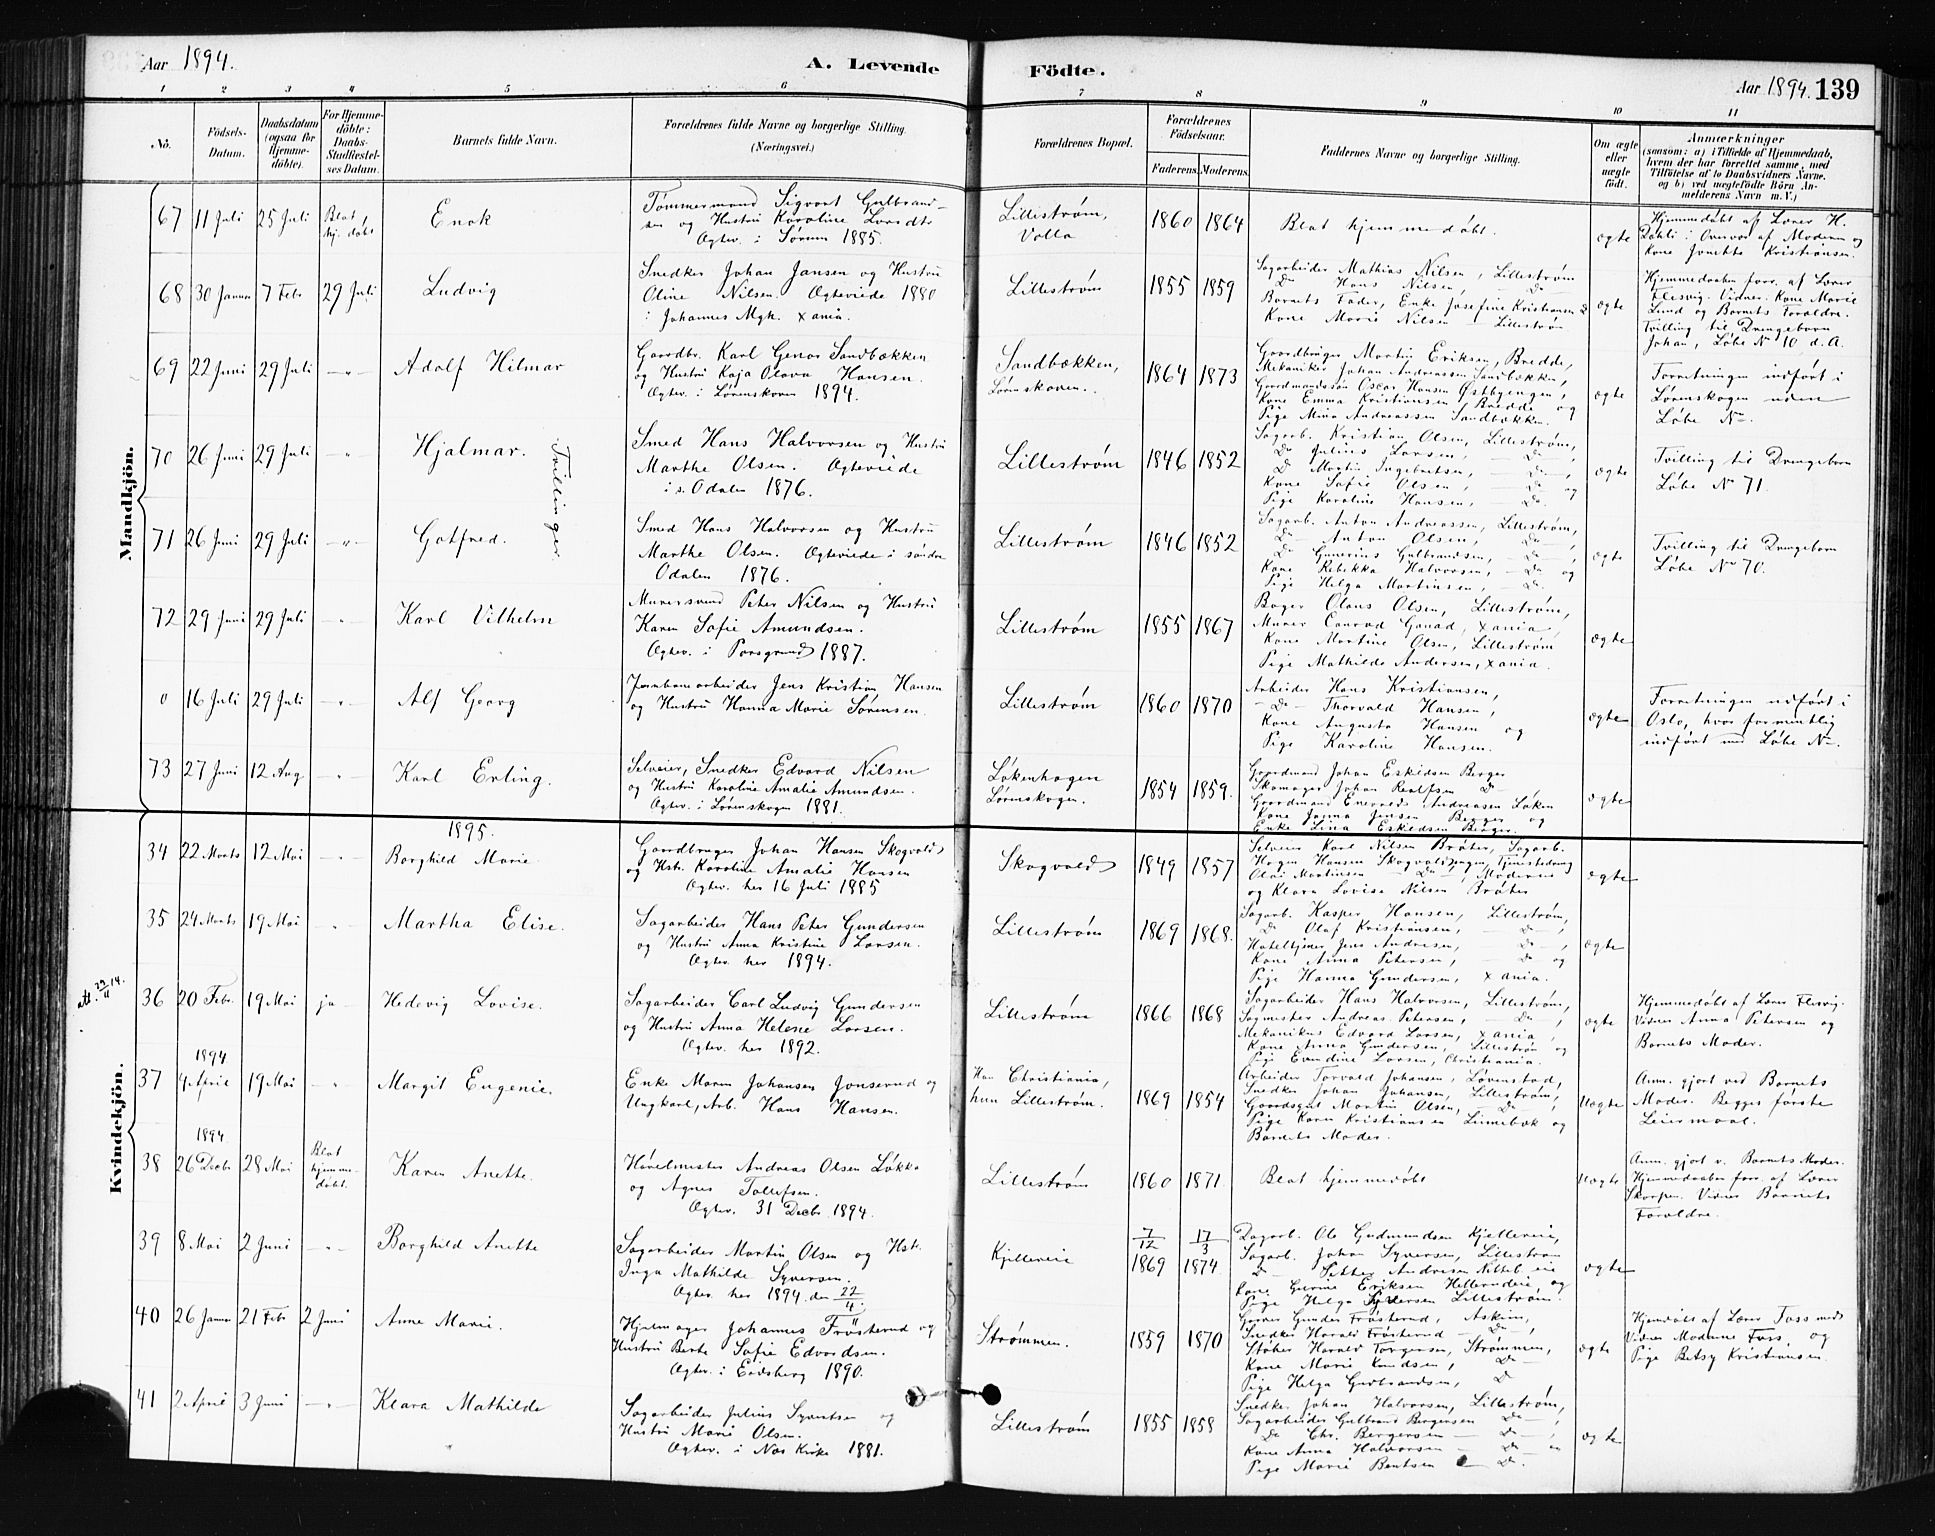 Aar 1894.
A. Levende
Födte.
Aar 1894. 139
1 2 3 4 5 6 7 8 9 10 11
No.
Födsels-Datum.
Daabsdatum (ogsaa for Hjemme-döbte).
For Hjemme-döbte: Daabs-Stadfæstel-ses Datum.
Barnets fulde Navn.
Forældrenes fulde Navne og borgerlige Stilling.
(Næringsvei.)
Forældrenes Bopæl.
Forældrenes Födselsaar.
Faderens. Moderens.
Faddernes Navne og borgerlige Stilling.
Om ægte eller uægte födt.
Anmærkninger
(saasom: a) i Tilfælde af Hjemmedaab, hvem der har forrettet samme, med Tilföielse af to Daabsvidners Navne, og b) ved uægtefödte Börn An-melderens Navn m. V.)
Mandkjön.
67 11 Juli 25 Juli Blot hj. døbt Enok
Tømmermand Sigvart Gulbrand-
sen og Hustru Karoline
Ægtev. i Sørum 1885.
Lillestrøm, Volla 1860 1864
Blot hjemmedøbt.
ægte
Hjemmedøbt af Lærer H.
Dahli i Overvær af Moderen og
Kone Kristiansen.
68 30 Januar 7 Febr 29 Juli Ludvig
Snedker Johan Jansen og Hustru
Oline Nilsen. Ægteviede 1880
i Johannes Mgh. Xania.
Lillestrøm 1855 1859
Sagarbeider Mathias Nilsen, Lillestrøm
Do Hans Nilsen, Do
Barnets Fader, Enke Josefine Kristiansen
Kone Marie Nilsen Lillestrøm
ægte
Hjemmedaaben forr. af Lærer
Flesvig. Vidner: Kone Marie
Lund og Barnets Forældre.
Tvilling til Drengebarn
Johan, Løbe No 10 d. A.
69 22 Juni 29 Juli -"- Adolf Hilmar
Gaardbr. Karl Sandbækken
og Hustru Kaja Olava Hansen.
Ægtev. i Lørenskoven 1894.
Sandbækken, Lørenskoven. 1864 1873
Gaardbruger Martin Eriksen, Bredde,
Mekaniker Johan Andreassen Sandbækken,
Gaardmandssøn Oscar Hansen Østbyengen,
Kone Emma Kristiansen, Bredde og
Pige Mina Andreassen Sandbækken.
ægte
Forretningen indført i
Lørenskogen uden
Løbe No.
70 26 Juni 29 Juli -"- Hjalmar.
Tvillinger
Smed Hans Halvorsen og Hustru
Marthe Olsen. Ægteviede
i s. Odalen 1876.
Lillestrøm 1846 1852
Sagarb. Kristian Olsen, Lillestrøm,
Do Julius Larsen, Do,
Do Martin Ingebretsen, Do,
Kone Sofie Olsen, Do og
Pige Karoline Hansen, Do.
ægte
Tvilling til Drengebarn
Løbe No 71.
71 26 Juni 29 Juli -"- Gotfred.
Smed Hans Halvorsen og Hustru
Marthe Olsen. Ægteviede i søndre
Odalen 1876.
Lillestrøm 1846 1852
Sagarb. Anton Andreassen, Lillestrøm,
Do Anton Olsen, Do,
Do Gunerius Gulbrandsen, Do,
Kone Rebekka Halvorsen, Do og
Pige Helga Martinsen, Do.
ægte
Tvilling til Drengebarn
Løbe No 70.
72 29 Juni 29 Juli -"- Karl Vilhelm
Murersvend Peter Nilsen og Hustru
Karen Sofie Amundsen.
Ægtev. i Porsgrund 1887.
Lillestrøm 1855 1867
Bager Olaus Olsen, Lillestrøm,
Murer Conrad Xania,
Kone Martine Olsen, Lillestrøm
Pige Mathilde Andersen, Xania.
ægte
0 16 Juli 29 Juli -"- Alf Georg
Jernbanearbeider Jens Kristian Hansen
og Hustru Hanna Marie Sørensen.
Lillestrøm 1860 1870
Arbeider Hans Kristiansen,
Do Thorvald Hansen,
Kone Augusta Hansen og
Pige Karoline Hansen.
ægte
Forretningen udført i
Oslo, hvor formentlig
indført med Løbe No.
73 27 Juni 12 Aug -"- Karl Erling.
Selveier, Snedker Edvard Nilsen
og Hustru Karoline Amalie Amundsen.
Ægtev. i Lørenskogen 1881.
Løkenhagen Lørenskogen. 1854 1859.
Gaardmand Johan Eskildsen Berger
Skomager Johan Do
Gaardmand Andreasen Løken
Kone Janna Jensen Berger og
Enke Lina Eskildsen Berger.
ægte
Kvindekjön.
1895.
34 22 Marts 12 Mai -"- Borghild Marie.
Gaardbruger Johan Hansen Skogvold
og Hst. Karoline Amalie Hansen
Ægtev. her 16 Juli 1885
Skogvold 1849 1857
Selveier Karl Nilsen Bråter, Sagarb.
Hagen Hansen
Olai Martinsen Do Moderen
og Klara Lovise Nilsen Bråter
ægte
35 24 Marts 19 Mai -"- Martha Elise.
Sagarbeider Hans Peter Gundersen
og Hustru Anna Kristine Larsen.
Ægtev. her 1894.
Lillestrøm 1869 1868.
Sagarb. Kasper Hansen, Lillestrøm,
Do Olaf Kristiansen, Do,
Hoteltjener Jens Andresen, Do,
Kone Anna Petersen, Do og
Pige Hanna Gundersen, Xania.
ægte
att. 29/11 14.
36 20 Febr. 19 Mai ja Hedevig Lovise.
Sagarbeider Carl Ludvig Gundersen
og Hustru Anna Helene Larsen.
Ægtev. her 1892.
Lillestrøm 1866 1868
Sagarbeider Hans Halvorsen, Lillestrøm,
Sagmester Andreas Petersen, Do,
Mekanikus Edvard Larsen, Xania,
Kone Anna Gundersen, Lillestrøm og
Pige Evendine Larsen, Christiania.
ægte
Hjemmedøbt af Lærer Flesvig.
Vidner Anna Petersen og
Barnets Moder.
1894
37 4 April 19 Mai -"- Margit Eugenie.
Enke Maren Johansen Jonserud og
Ungkarl, Arb. Hans Hansen.
Han Christiania, hun Lillestrøm. 1869 1854
Arbeider Torvald Johansen, Lørenstad,
Snedker Johan Johansen, Lillestrøm,
Gaardsgut Martin Olsen, Do,
Pige Karen Kristiansen Linnebæk og
Barnets Moder.
Uægte
Anm. gjort ved Barnets
Moder. Begges første
Leiermaal.
1894.
38 26 Decbr 28 Mai Blot hjemme-døbt. Karen Anette.
Høvelmester Andreas Olsen Løkka
og Agnes Tollefsen.
Ægtev. 31 Decbr 1894.
Lillestrøm 1860 1871
Blot hjemmedøbt
Uægte
Anm. gjort v. Barnets Moder.
Hjemmedaaben forr. af Lærer
Vidner Barnets
Forældre.
39 8 Mai 2 Juni -"- Borghild Anette
Sagarbeider Martin Olsen og Hst.
Inga Mathilde Syversen.
Ægtev. her 1894. den 22/4.
Kjellereie 7/12 1869 17/3 1874
Dagarb. Ole Gudmundsen Kjellereie,
Sagarb. Johan Syversen, Lillestrøm
Do Andresen
Kone Gurine Eriksen og
Pige Helga Syversen Lillestrøm.
ægte
40 26 Januar 21 Febr 2 Juni Anne Marie.
Hjulmager Johannes Frøsterud og
Hustru Berte Sofie Edvardsen.
Ægtev. i Eidsberg 1890.
Strømmen. 1859 1870
Garver Gunder Frøsterud, Askim,
Snedker Harald Frøsterud Do,
Støber Harald Torgersen, Strømmen,
Kone Marie Knudsen, Do
Pige Helga Gudbrandsen, Do
ægte
Hjemdøbt af Lærer Foss med
Vidner Madame Foss og
Pige Betsy Kristiansen.
41 2 April 3 Juni -"- Klara Mathilde
Sagarbeider Julius Syvertsen og
Hustru Marie Olsen.
Ægtev. i Næs Kirke 1881.
Lillestrøm 1855 1858
Snedker Johan Halvorsen, Lillestrøm,
Sagarbeider Gulbrand Bergersen Do,
Do Chr. Bergersen Do,
Kone Anna Halvorsen Do og
Pige Marie Bentsen Do.
ægte